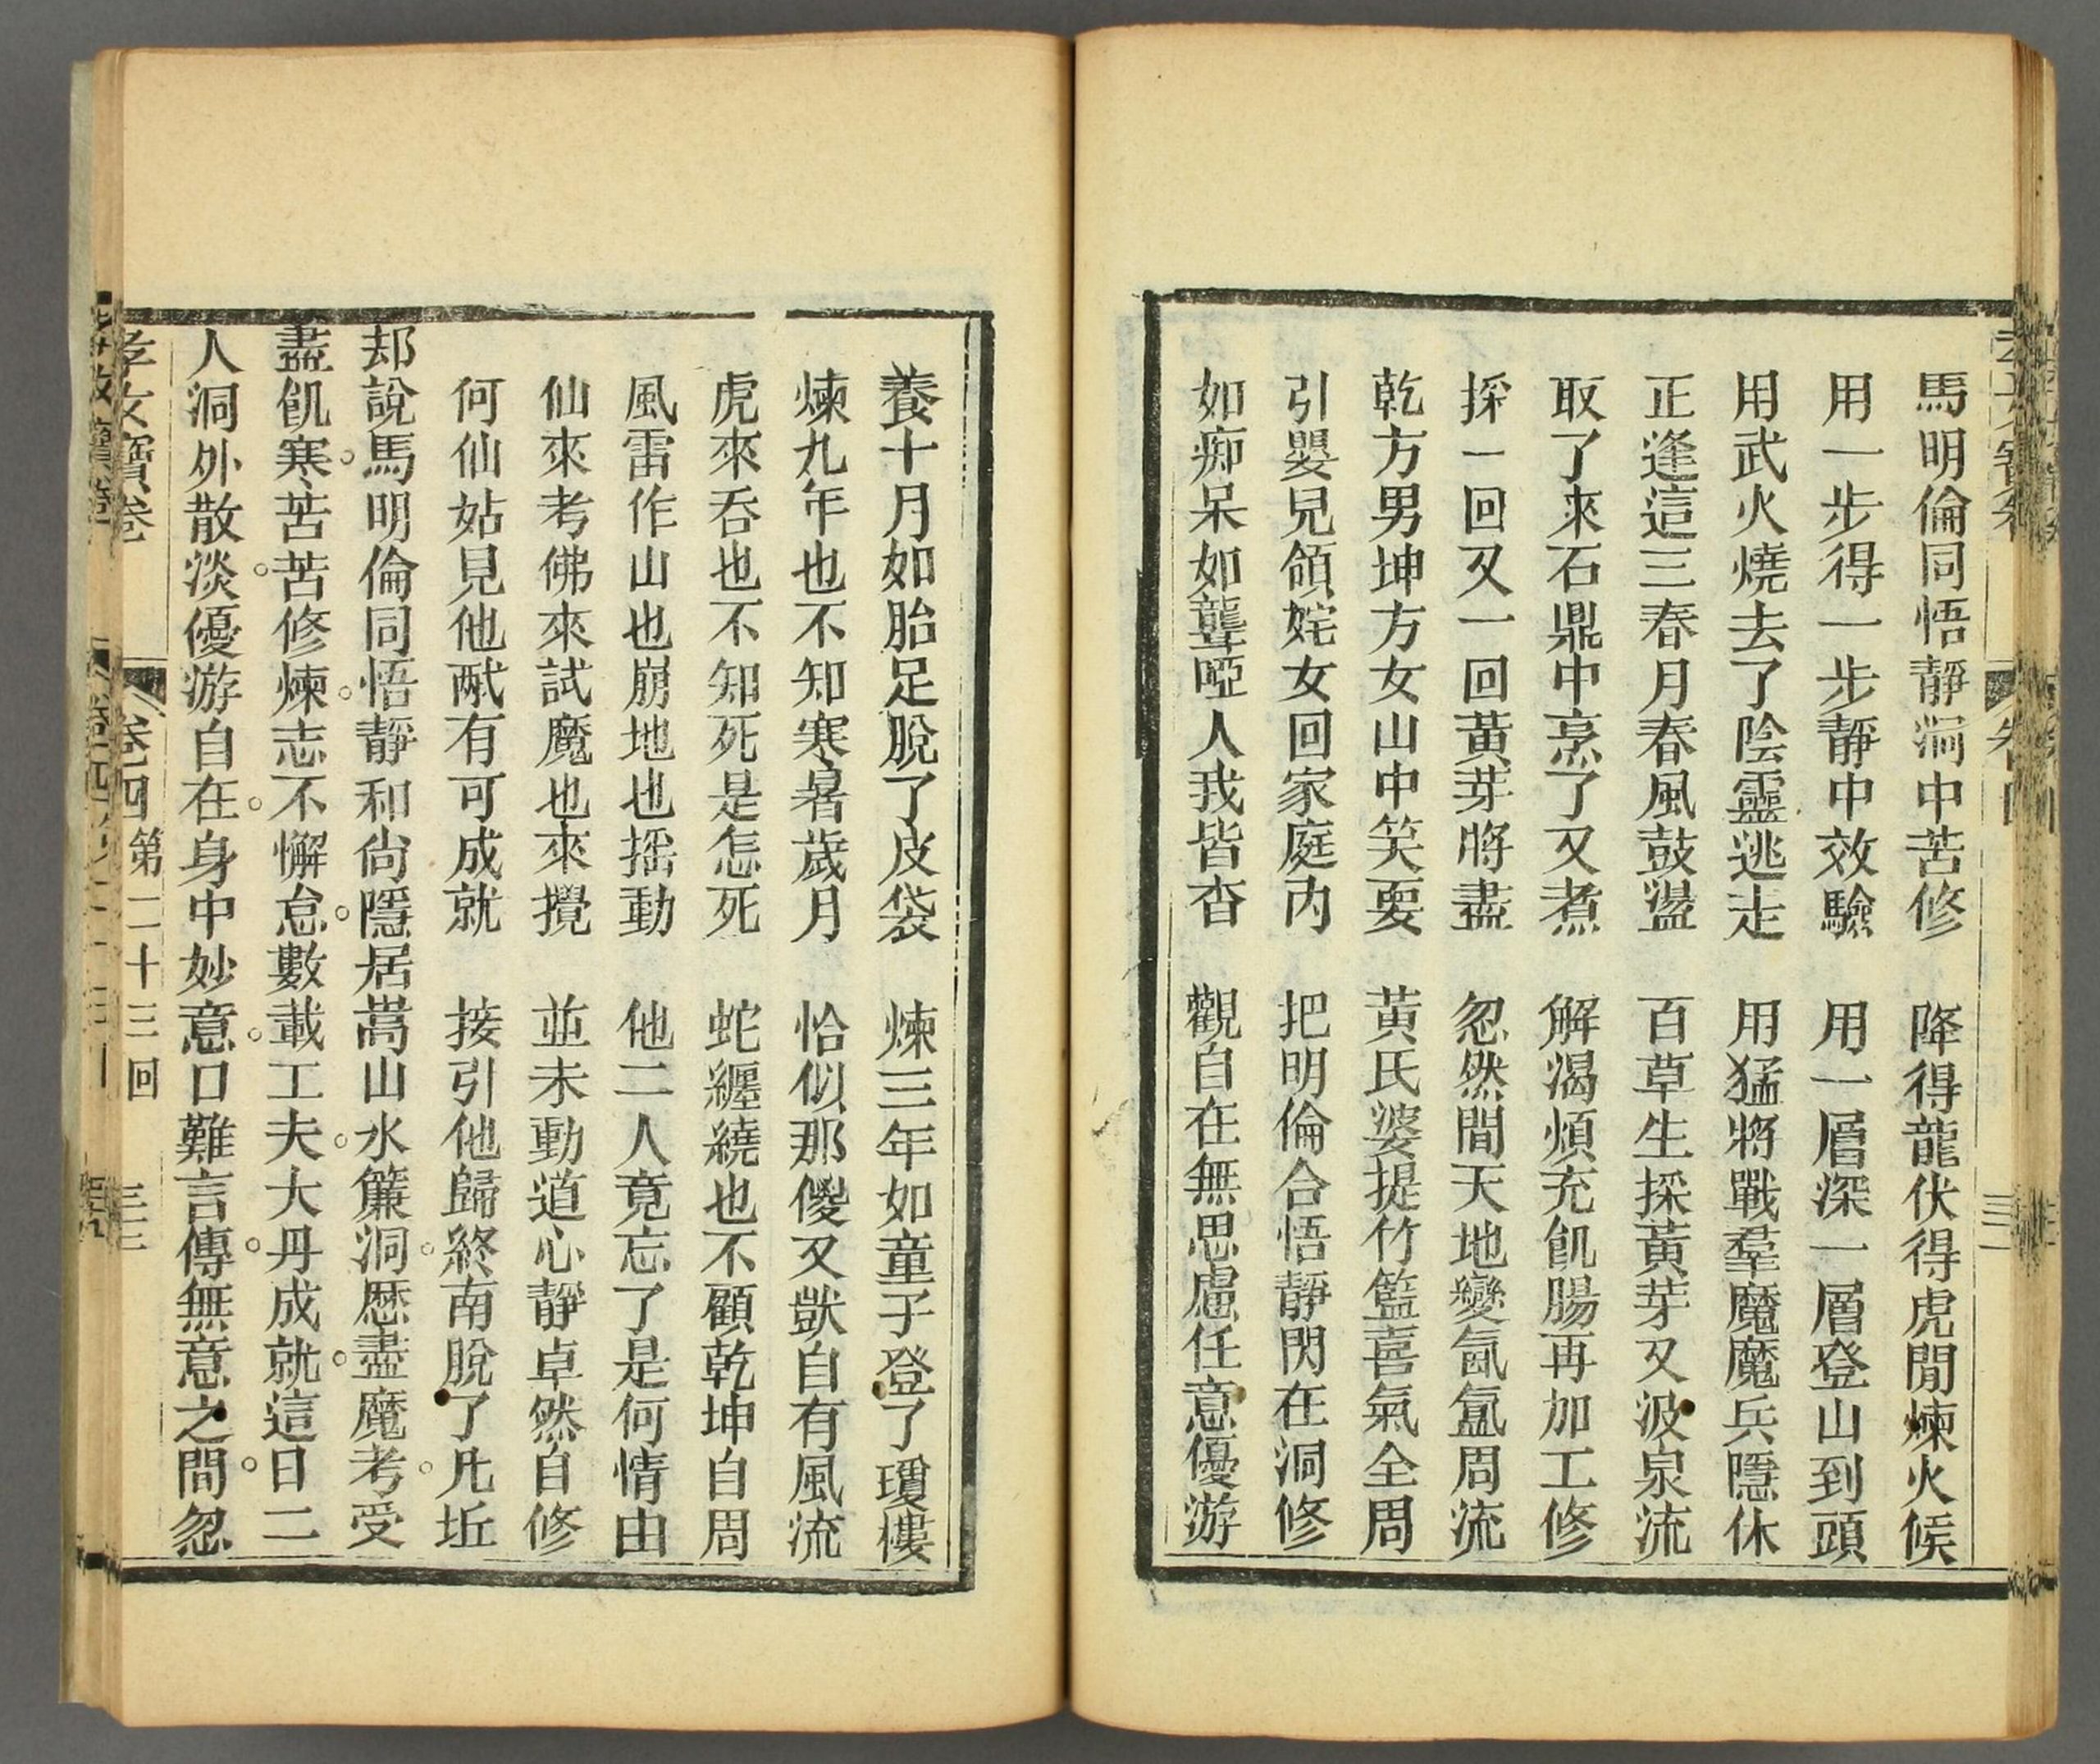 馬明倫同悟靜洞中苦修　降得龍伏得虎閒煉火候
用一步得一步靜中效驗　用一層深一層登山到頭
用武火燒去了陰靈逃走　用猛將戰羣魔魔兵隱休
正逢這三春月春風鼓盪　百草生採黃芽又汲泉流
取了來石鼎中烹了又煮　解渴煩充飢腸再加工修
採一回又一回黃芽將盡　忽然間天地變氤氳周流
乾方男坤方女山中笑耍　黃氏婆提竹籃喜氣全周
引嬰兒領姹女回家庭內　把明倫合悟靜閃在洞修
如痴呆如聾啞人我皆杳　觀自在無思慮任意優游
養十月如胎足脫了皮袋　煉三年如童子登了瓊樓
煉九年也不知寒暑歲月　恰似那儍又獃自有風流
虎來吞也不知死是怎死　蛇纒繞也不顧乾坤自周
風雷作山也崩地也搖動　他二人竟忘了是何情由
仙來考佛來試魔也來攪　並未動道心靜卓然自修
何仙姑見他兩有可成就　接引他歸終南脫了凡坵
却說馬明倫同悟靜和尙隱居嵩山水簾洞。歷盡魔考。受
盡飢寒。苦苦修煉。志不懈怠。數載工夫。大丹成就。這日二
人洞外散淡。優游自在。身中妙意。口難言傳。無意之間。忽
孝女寶卷　卷四　第二十三回　三十二